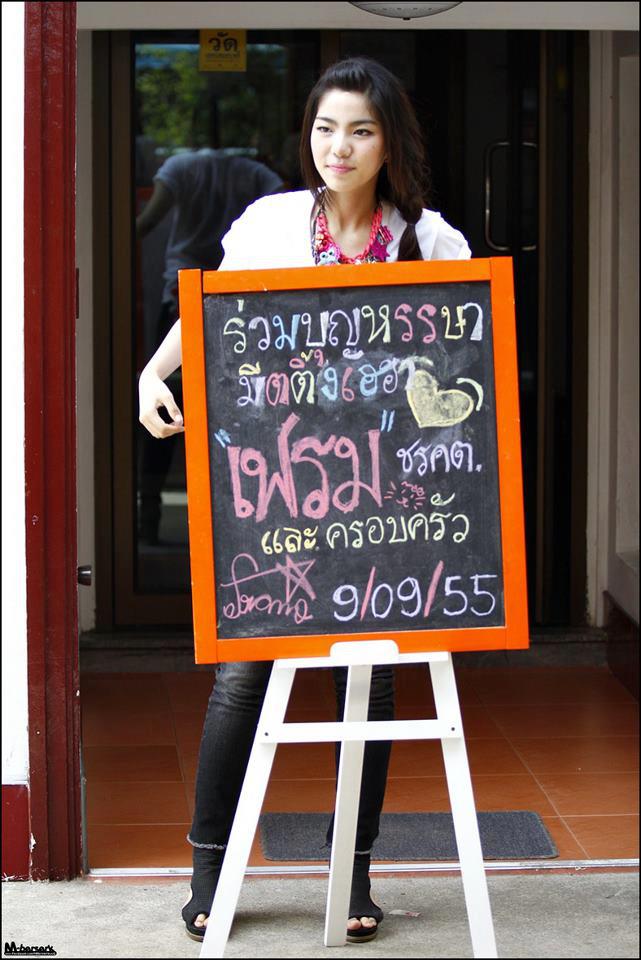 วัด
ร่วมบุญหรรษา
มีตติ้งเฮฮา
"เฟรม" ชรคต.
และ ครอบครัว
9/09/55
M-berserk